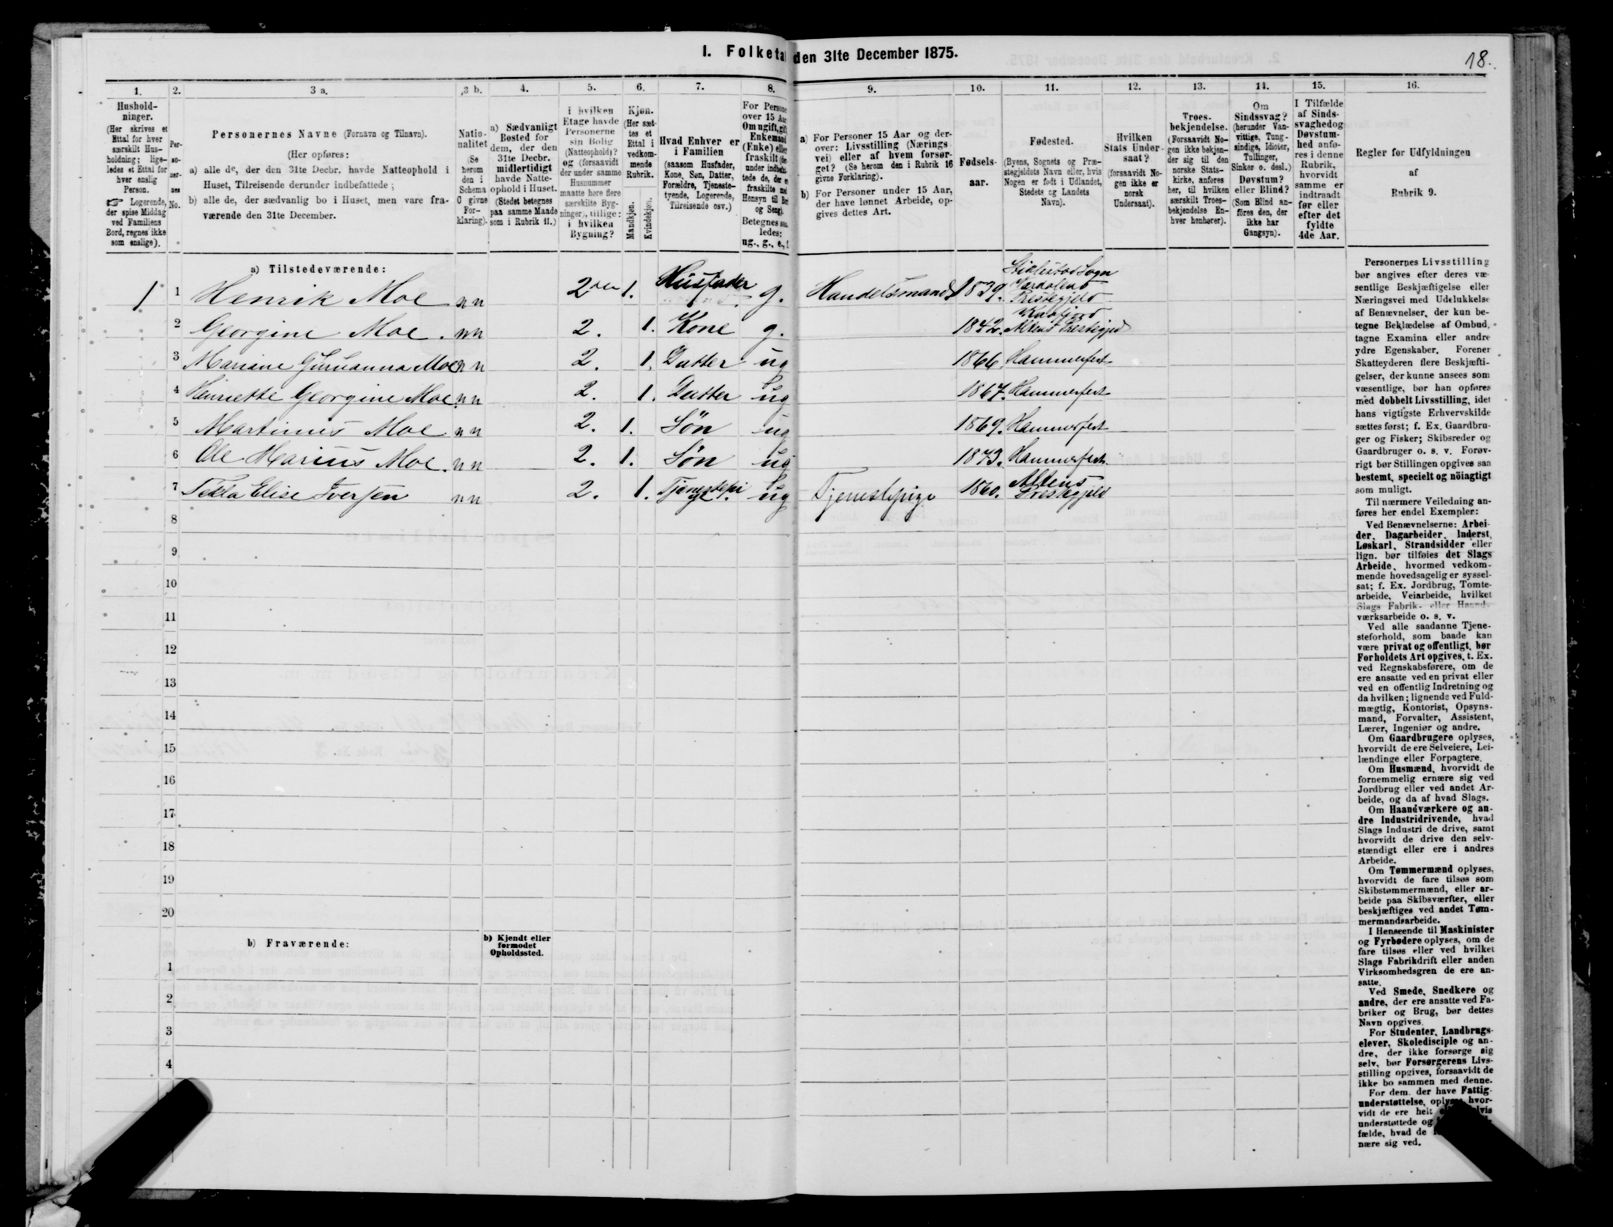 I. Folketal den 31te December 1875.
18.
1.
Hushold-
ninger.
(Her skrives et
Ettal for hver
særskilt Hus-
holdning; lige-
ledes et Ettal for
hver enslig
Person.
☞ Logerende,
der spise Middag
ved Familiens
Bord, regnes ikke
som enslige).
2.
Per-
so-
ner-
nes
No.
3 a.
Personernes Navne (Fornavn og Tilnavn).
(Her opføres:
a) alle de, der den 31te Decbr. havde Natteophold i
Huset, Tilreisende derunder indbefattede;
b) alle de, der sædvanlig bo i Huset, men vare fra-
værende den 31te December.
3 b.
Natio-
nalitet
(Se
herom
den i
Schema
C givne
For-
klaring).
4.
a) Sædvanligt
Bosted for
dem, der den
31te Decbr.
midlertidigt
havde Natte-
ophold i Huset.
(Stedet betegnes
paa samme Maade
som i Rubrik 11.)
5.
I hvilken
Etage havde
Personerne
sin Bolig
(Natteophold)?
og (forsaavidt
der under samme
Husnummer
maatte høre flere
særskilte Byg-
ninger), tillige:
i hvilken
Bygning?
6.
Kjøn.
(Her sæt-
tes et
Ettal i
vedkom-
mende
Rubrik.
Mandkjøn.
Kvindekjøn.
7.
Hvad Enhver er
i Familien
(saasom Husfader,
Kone, Søn, Datter,
Forældre, Tjeneste-
tyende, Logerende,
Tilreisende osv.)
8.
For Persone
over 15 Aar
Om ugift, gift
Enkemand
(Enke) eller
fraskilt
Betegnes saa-
ledes:
ug., g., e., f.
9.
a) For Personer 15 Aar og der-
over: Livsstilling (Nærings
vei) eller af hvem forsør-
get? (Se herom den i Rubrik 16
givne Forklaring).
b) For Personer under 15 Aar,
der have lønnet Arbeide, op-
gives dettes Art.
10.
Fødsels-
aar.
11.
Fødested.
(Byens, Sognets og Præ-
stegjeldets Navn eller, hvis
Nogen er født i Udlandet,
Stedets og Landets
Navn).
12.
Hvilken
Stats Under-
saat?
(forsaavidt No-
gen ikke er
norsk
Undersaat).
13.
Troes-
bekjendelse.
(Forsaavidt No-
gen ikke bekjen-
der sig til den
norske Stats-
kirke, anføres
her, til hvilken
særskilt Troes-
bekjendelse En-
hver henhører).
14.
Om
Sindssvag?
(herunder Van-
vittige, Tung-
sindige, Idioter,
Tullinger,
Sinker o. desl.)
Døvstum?
eller Blind?
(Som Blind an-
føres den, der
ikke har
Gangsyn).
15.
I Tilfælde
af Sinds-
svaghed og
Døvstum-
hed anfø-
res i denne
Rubrik,
hvorvidt
samme er
indtraadt
før eller
efter det
fyldte
4de Aar.
16.
Regler for Udfyldningen
af
Rubrik 9.
a) Tilstedeværende:
1 1 Henrik Moe n n 2den 1. Husfader g. Handelsmand 1839. Stiklestad Sogn Værdalens Prestegjeld
2 Georgine Moe. n n 2. 1. Kone g. 1842. Kaafjord Altens Prestegjed
3 Mariane Moe n n 2. 1. Datter ug 1866. Hammerfest
4 Henriette Georgine Moe. n n 2. 1. Datter ug 1867. Hammerfest
5 Martinus Moe n n 2. 1. Søn ug 1869. Hammerfest
6 Ole Marius Moe. n n 2. 1. Søn ug 1873. Hammerfest.
7 Elise Iversen n n 2. 1. Tjenestepige ug Tjenestepige 1860. Altens Prestegjeld
8
9
10
11
12
13
14
15
16
17
18
19
20
b) Fraværende:
b) Kjendt eller
formodet
Opholdssted.
1
2
3
4
Personernes Livsstilling
bør angives efter deres væ-
sentlige Beskjæftigelse eller
Næringsvei med Udelukkelse
af Benævnelser, der kun be-
tegne Beklædelse af Ombud,
tagne Examina eller andre
ydre Egenskaber. Forener
Skatteyderen flere Beskjæfti-
gelser, der kunne ansees som
væsentlige, bør han opføres
med dobbelt Livsstilling, idet
hans vigtigste Erhvervskilde
sættes først; f. Ex. Gaardbru-
ger og Fisker; Skibsreder og
Gaardbruger o. s. v. Forøv-
rigt bør Stillingen opgives saa
bestemt, specielt og nøiagtigt
som muligt.
Til nærmere Veiledning an-
føres her endel Exempler:
Ved Benævnelserne: Arbei-
der, Dagarbeider, Inderst,
Løskarl, Strandsidder eller
lign. bør tilføies det Slags
Arbeide, hvormed vedkom-
mende hovedsagelig er syssel-
sat; f. Ex. Jordbrug, Tomte-
arbeide, Veiarbeide, hvilket
Slags Fabrik- eller Haand-
værksarbeide o. s. v.
Ved alle saadanne Tjene-
steforhold, som baade kan
være privat og offentligt, bør
Forholdets Art opgives, t. Ex.
ved Regnskabsførere, om de
ere ansatte ved en privat eller
ved en offentlig Indretning og
da hvilken; lignende ved Fuld-
mægtig, Kontorist, Opsyns-
mand, Forvalter, Assistent,
Lærer, Ingeniør og andre.
Om Gaardbrugere oplyses,
hvorvidt de ere Selveiere, Lei-
lændinge eller Forpagtere.
Om Husmænd, hvorvidt de
fornemmelig ernære sig ved
Jordbrug eller ved andet Ar-
beide, og da af hvad Slags.
Om Haandværkere og an-
dre Industridrivende, hvad
Slags Industri de drive, samt
hvorvidt de drive den selv-
stændigt eller ere i andres
Arbeide.
Om Tømmermænd oplyses,
hvorvidt de fare tilsøs som
Skibstømmermænd, eller ar-
beide paa Skibsværfter, eller
beskjæftiges ved andet Tøm-
mermandsarbeide.
I Henseende til Maskinister
og Fyrbødere oplyses, om de
fare tilsøs eller ved hvilket
Slags Fabrikdrift eller anden
Virksomhedsgren de ere an-
satte.
Ved Smede, Snedkere og
andre, der ere ansatte ved Fa-
briker og Brug, bør dettes
Navn opgives.
For Studenter, Landbrugs-
elever, Skoledisciple og an-
dre, der ikke forsørge sig
selv, bør Forsørgerens Livs-
stilling opgives, forsaavidt de
ikke bo sammen med denne.
For dem, der have Fattig-
understøttelse, oplyses, hvor-
vidt de ere helt
understøttede og
fælde, hvad de
nære sig ved.